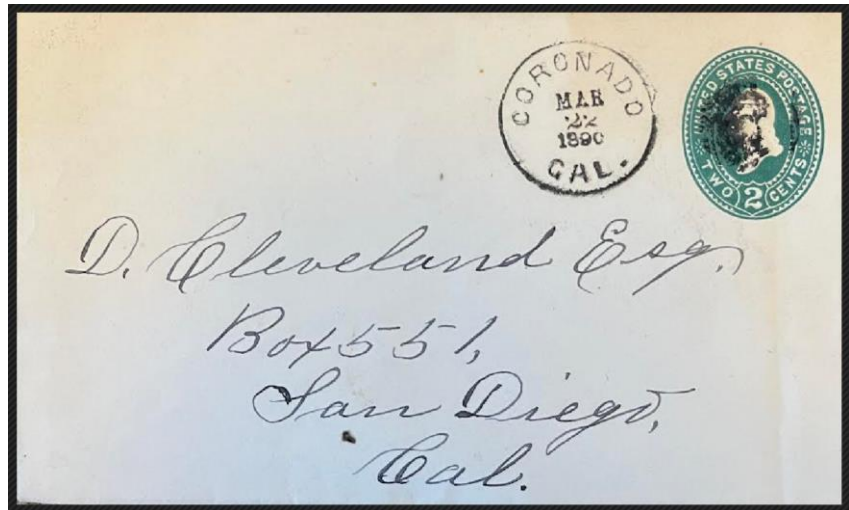 CORONADO
MAR
22
1890
CAL.
UNITED STATES POSTAGE
TWO 2 CENTS
D. Cleveland Esq.
Box 551,
San Diego,
Cal.